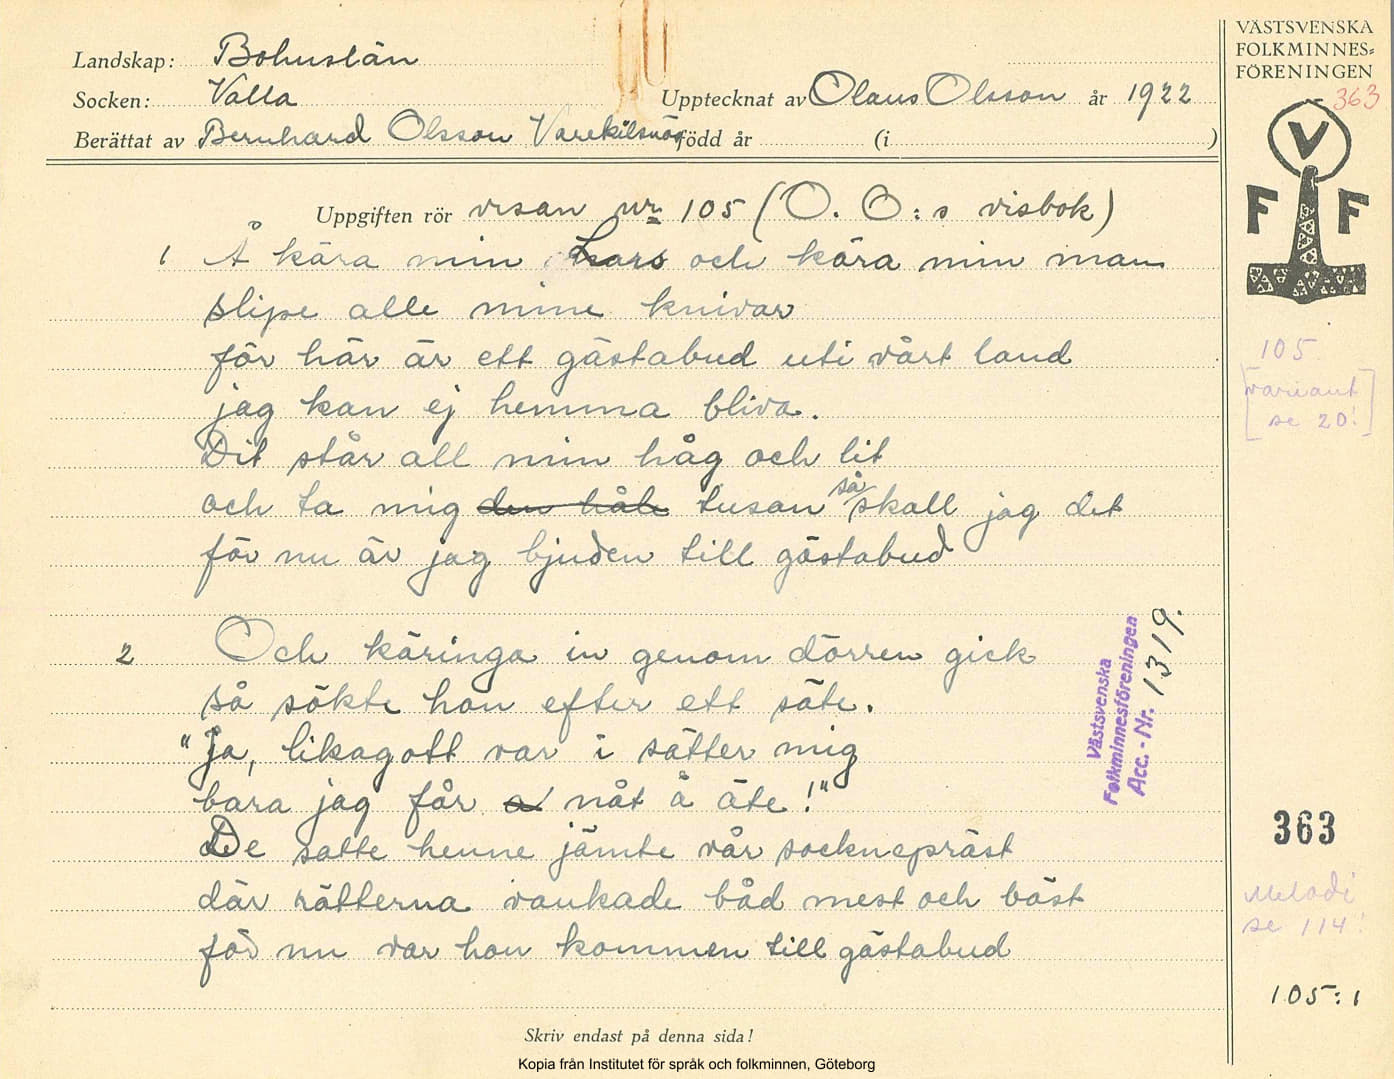 VÄSTSVENSKA
FOLKMINNES=
FÖRENINGEN
363
V
F F
Landskap: Bohuslän
Socken: Valla
Upptecknat av Olaus Olsson år 1922
Berättat av Bernhard Olsson Varekilsnäs född år (i )
Uppgiften rör visan nr 105 (O. O:s visbok)
1 Å kära min Lars och kära min man
slipe alle mine knivar
för här är ett gästabud uti vårt land
jag kan ej hemma bliva.
Dit står all min håg och lit
och ta mig den håle tusan så skall jag dit
för nu är jag bjuden till gästabud
2 Och käringa in genom dörren gick
så sökte hon efter ett säte.
"Ja, likagott var i sätter mig
bara jag får a nåt å äte!"
De satte henne jämte vår socknepräst
där rätterna vankade båd mest och bäst
för nu var hon kommen till gästabud
105.
[variant
se 20!]
Västsvenska
Folkminnesföreningen
Acc.-Nr. 1319.
363
Melodi
se 114!
105:1
Skriv endast på denna sida!
Kopia från Institutet för språk och folkminnen, Göteborg